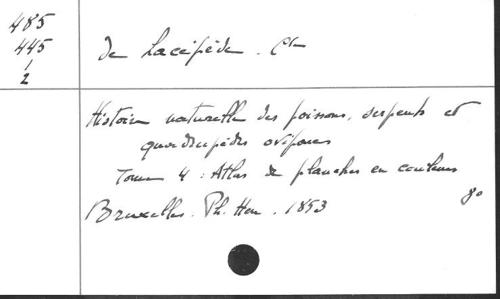 485
445
1
2
de Lacépède. Cte
Histoire naturelle des poissons, serpents et
quadrupèdes ovipares
Tome 4 : Atlas de planches en couleurs
Bruxelles. Ph. Hen. 1853 8o